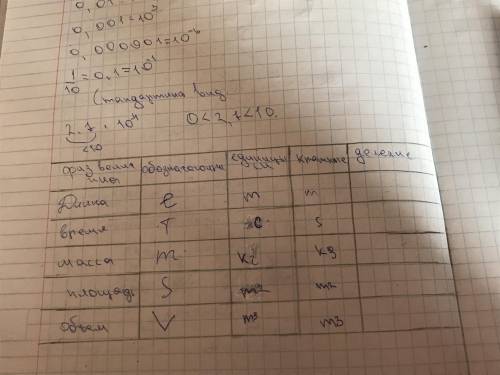 0,001=10³
0,000001=10⁻⁶
1/10=0,1=10⁻¹
Стандартина вид
2.7 · 10⁴ 0<2,7<10.
<10
физ велич ина обозначающие единицы си Кратные деление
Длина ℓ m m
время T c s
масса m кг kg
площадь S m2 m2
объем V m³ m3